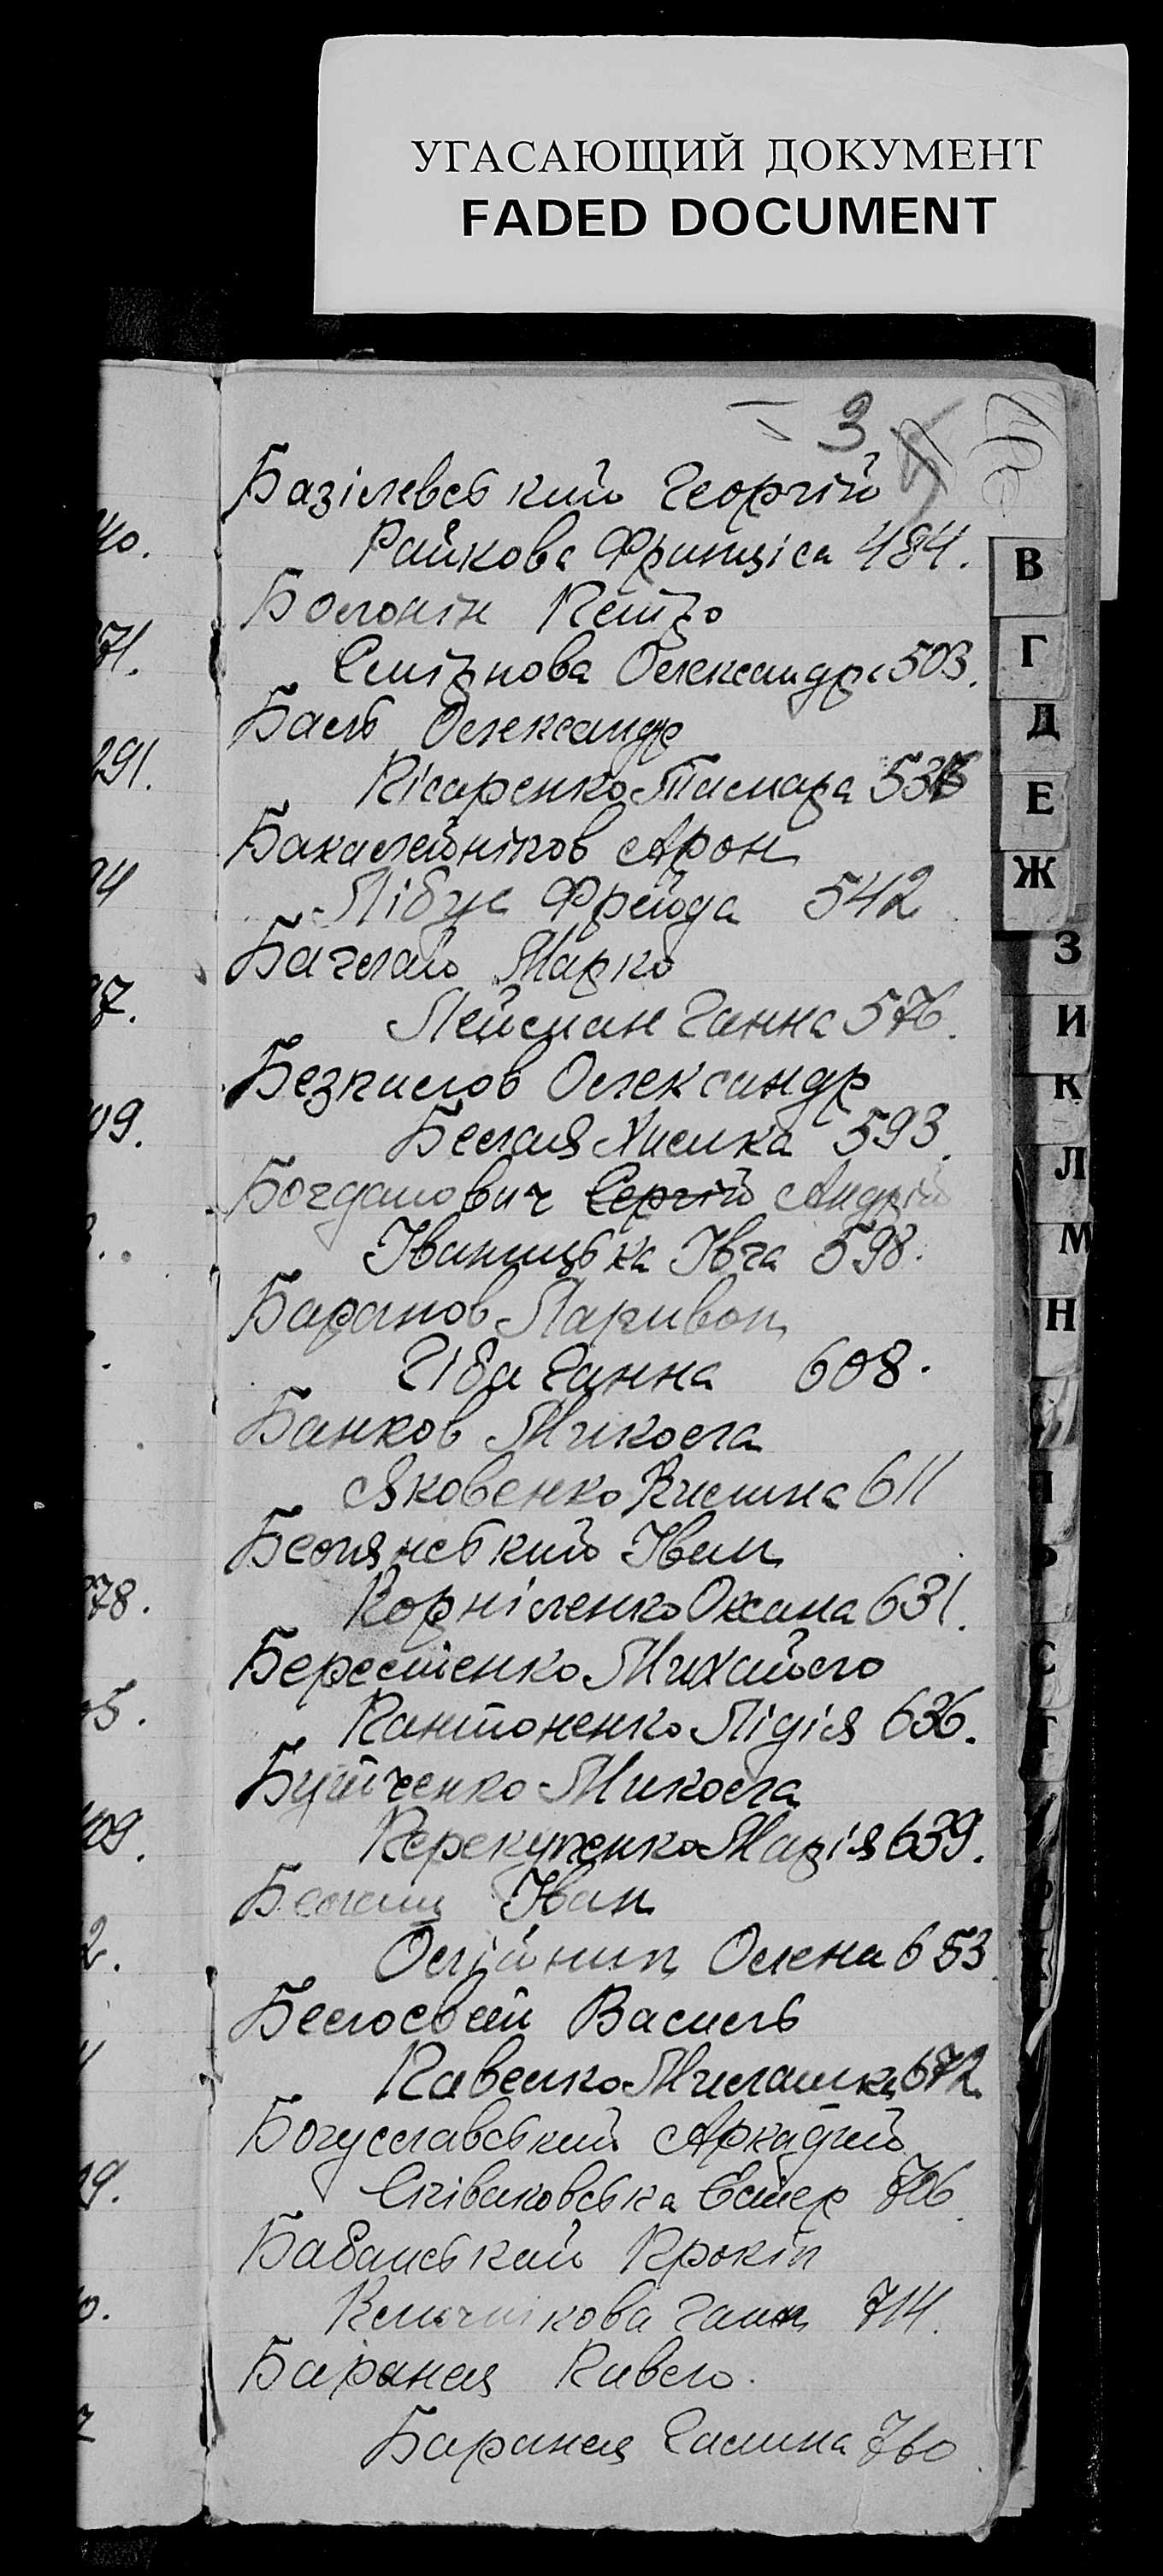 УГАСАЮЩИЙ ДОКУМЕНТ
FADED DOCUMENT
3
Базілевський Георгій
Райкова Франціса 484.
Болонін Петро
Смірнова Олександра 503.
Баль Олександр
Пісаренко Тамара
Бакалейніков Арон
Лібус Фрейда 542
Баглай Марко
Лейсман Ганна 576.
Безпалов Олександр
Белая Химка 593.
Богданович Сергій Андрій
Іваницька Івга 598.
Баранов Ларивон
Гіба Ганна 608.
Банков Микола
Яковенко 611
Белянський Іван
Корніленко Оксана 631.
Берестенко Михайло
Пантоненко Лідія 636.
Бутченко Микола
Перекупенко Марія 639.
Іван
Олійник Олена 653
Белосвет Василь
Павелко 672.
Богуславський Аркадий
Співаковська Естер 706.
Бабанський Прокіп
714.
Бараная Павло.
Бараная Галина 760
В
Г
Д
Е
Ж
З
И
К
Л
М
Н
П
Р
С
Т
40.
71.
291.
09.
78.
5.
09.
2.
9.
0.